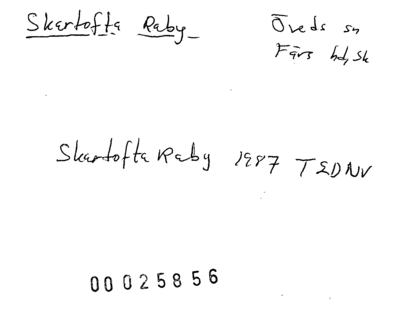 Skartofta Raby
Öveds sn
Färs hd, Sk
Skartofta Raby 1987 TEDNV
00025856